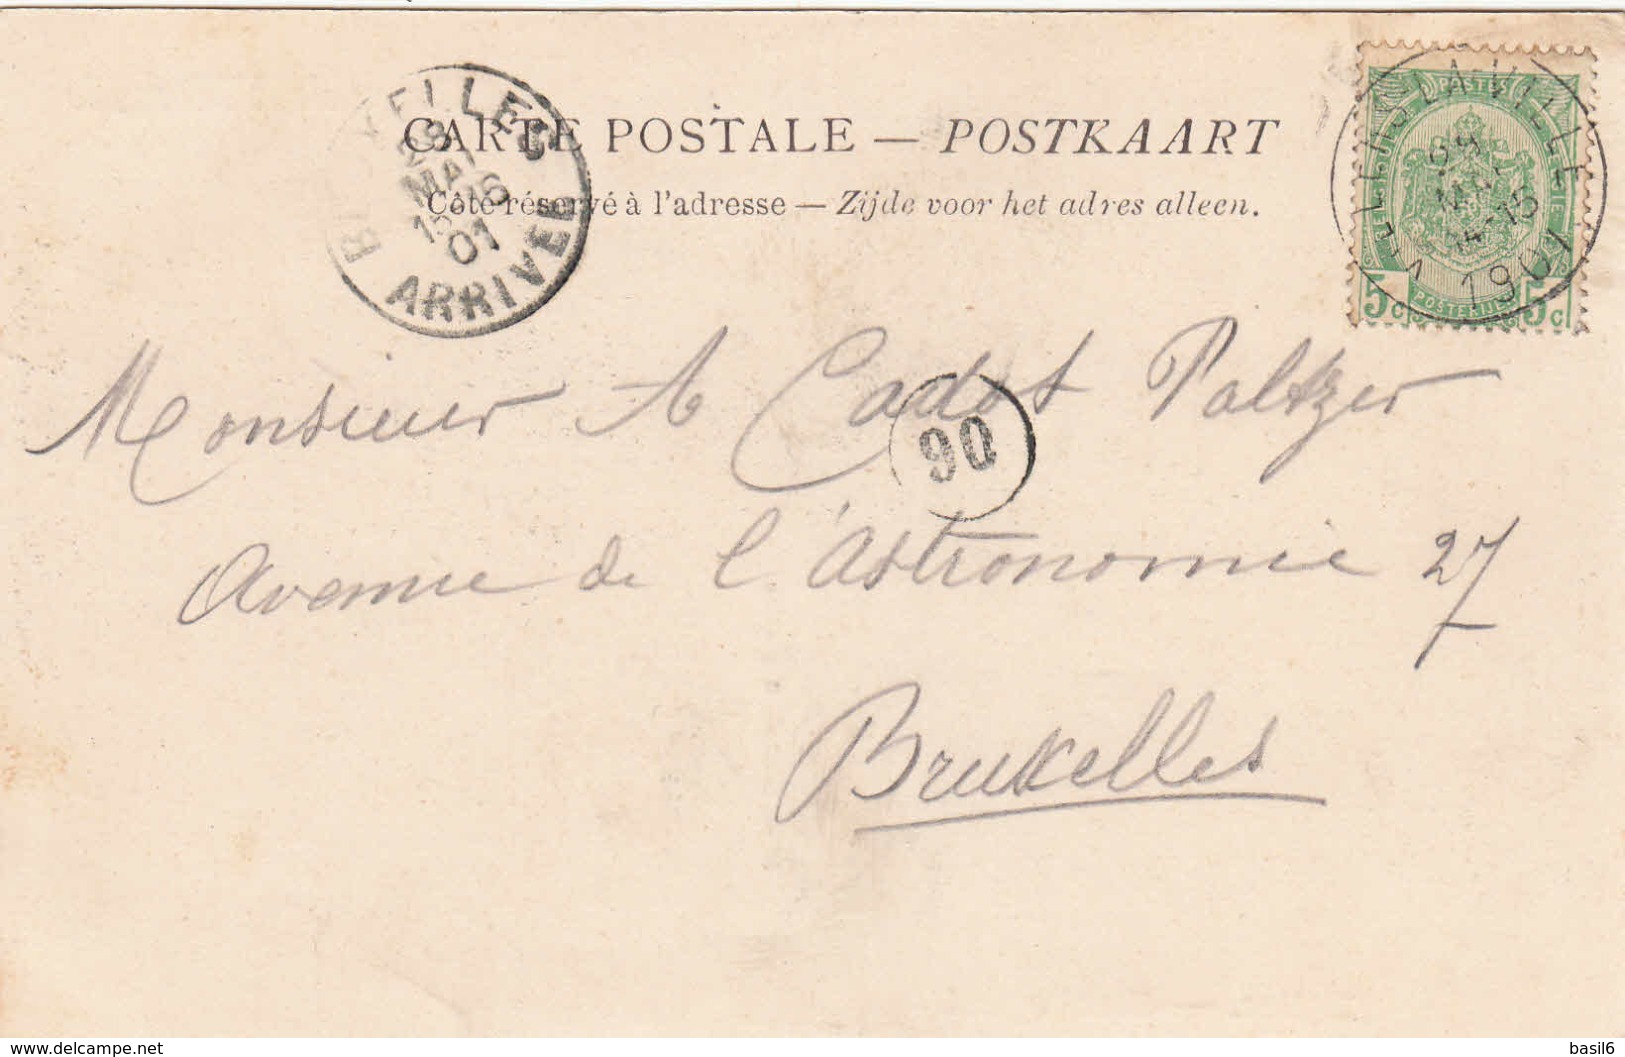 CARTE POSTALE — POSTKAART
Côté réservé à l'adresse — Zijde voor het adres alleen.
MAI
01
ARRIVEE
POSTES
VIEILLE
1901
5c
5c
Monsieur A Cadot Paltzer
90
Avenue de l'Astronomie 27
Bruxelles
www.delcampe.net
basil6